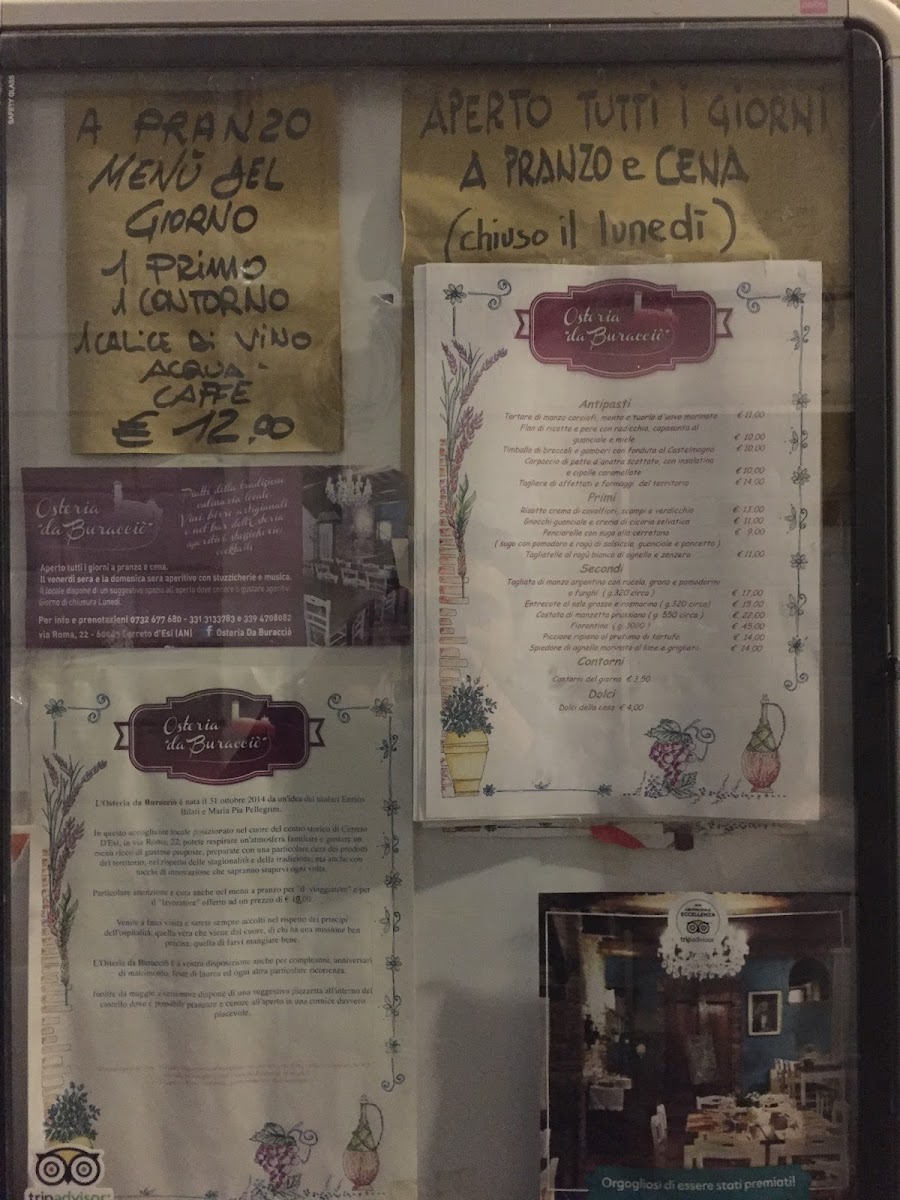 SAFETY GLASS
A PRANZO
MENÙ DEL
GIORNO
1 PRIMO
1 CONTORNO
1 CALICE DI VINO
ACQUA -
CAFFÈ
€ 12,00
APERTO TUTTI I GIORNI
A PRANZO e CENA
(chiuso il lunedì)
Osteria
"da Buracciò"
Antipasti
Tartare di manzo carciofi, menta e tuorlo d'uovo marinato € 11,00
Flan di ricotta e pere con radicchio, caponata al
guanciale e miele € 10,00
Timballo di broccoli e gamberi con fonduta al Castelmagno € 10,00
Carpaccio di petto d'anatra scottato, con insalatina
e cipolle caramellate € 10,00
Tagliere di affettati e formaggi del territorio € 14,00
Primi
Risotto crema di cavolfiori, scampi e verdicchio € 13,00
Gnocchi guanciale e crema di cicoria selvatica € 11,00
Penciarelle con sugo alla cerretana € 9,00
( sugo con pomodoro e ragù di salsiccia, guanciale e pancetta )
Tagliatelle al ragù bianco di agnello e zenzero € 11,00
Secondi
Tagliata di manzo argentino con rucola, grana e pomodorini
o funghi ( g.320 circa ) € 17,00
Entrecote al sale grosso e rosmarino ( g.320 circa) € 15,00
Costata di manzetta prussiana ( g. 550 circa ) € 22,00
Fiorentina ( g. 1000 ) € 45,00
Piccione ripieno al profumo di tartufo € 14,00
Spiedone di agnello marinato al lime e grigliati € 14,00
Contorni
Contorni del giorno € 3,50
Dolci
Dolci della casa € 4,00
Osteria
"da Buracciò"
Piatti della tradizione
culinaria locale
Vini, birre artigianali
e nel bar dell'Osteria
aperitivi, stuzzicherie
cocktails
Aperto tutti i giorni a pranzo e cena.
Il venerdì sera e la domenica sera aperitivo con stuzzicherie e musica.
Il locale dispone di un suggestivo spazio all'aperto dove cenare o gustare aperitivi
Giorno di chiusura Lunedì.
Per info e prenotazioni 0732 677 680 - 331 3133783 o 339 4708082
via Roma, 22 - 60043 Cerreto d'Esi (AN) f Osteria Da Buracciò
Osteria
"da Buracciò"
L'Osteria da Buracciò è nata il 31 ottobre 2014 da un'idea dei titolari Enrico
Bilati e Maria Pia Pellegrini.
In questo accogliente locale posizionato nel cuore del centro storico di Cerreto
D'Esi, in via Roma, 22, potete respirare un'atmosfera familiare e gustare un
menù ricco di gustose proposte, preparate con una particolare cura dei prodotti
del territorio, nel rispetto della stagionalità e della tradizione, ma anche con
tocchi di innovazione che sapranno stupirvi ogni volta.
Particolare attenzione e cura anche nel menù a pranzo per "il viaggiatore" e per
il "lavoratore" offerto ad un prezzo di €
Venite a farci visita e sarete sempre accolti nel rispetto dei principi
dell'ospitalità, quella vera che viene dal cuore, di chi ha una missione ben
precisa: quella di farvi mangiare bene.
L'Osteria da Buracciò è a vostra disposizione anche per compleanni, anniversari
di matrimonio, feste di laurea ed ogni altra particolare ricorrenza.
Inoltre da maggio a settembre dispone di una suggestiva piazzetta all'interno del
castello dove è possibile pranzare e cenare all'aperto in una cornice davvero
piacevole.
tripadvisor
ECCELLENZA
tripadvisor
Orgogliosi di essere stati premiati!